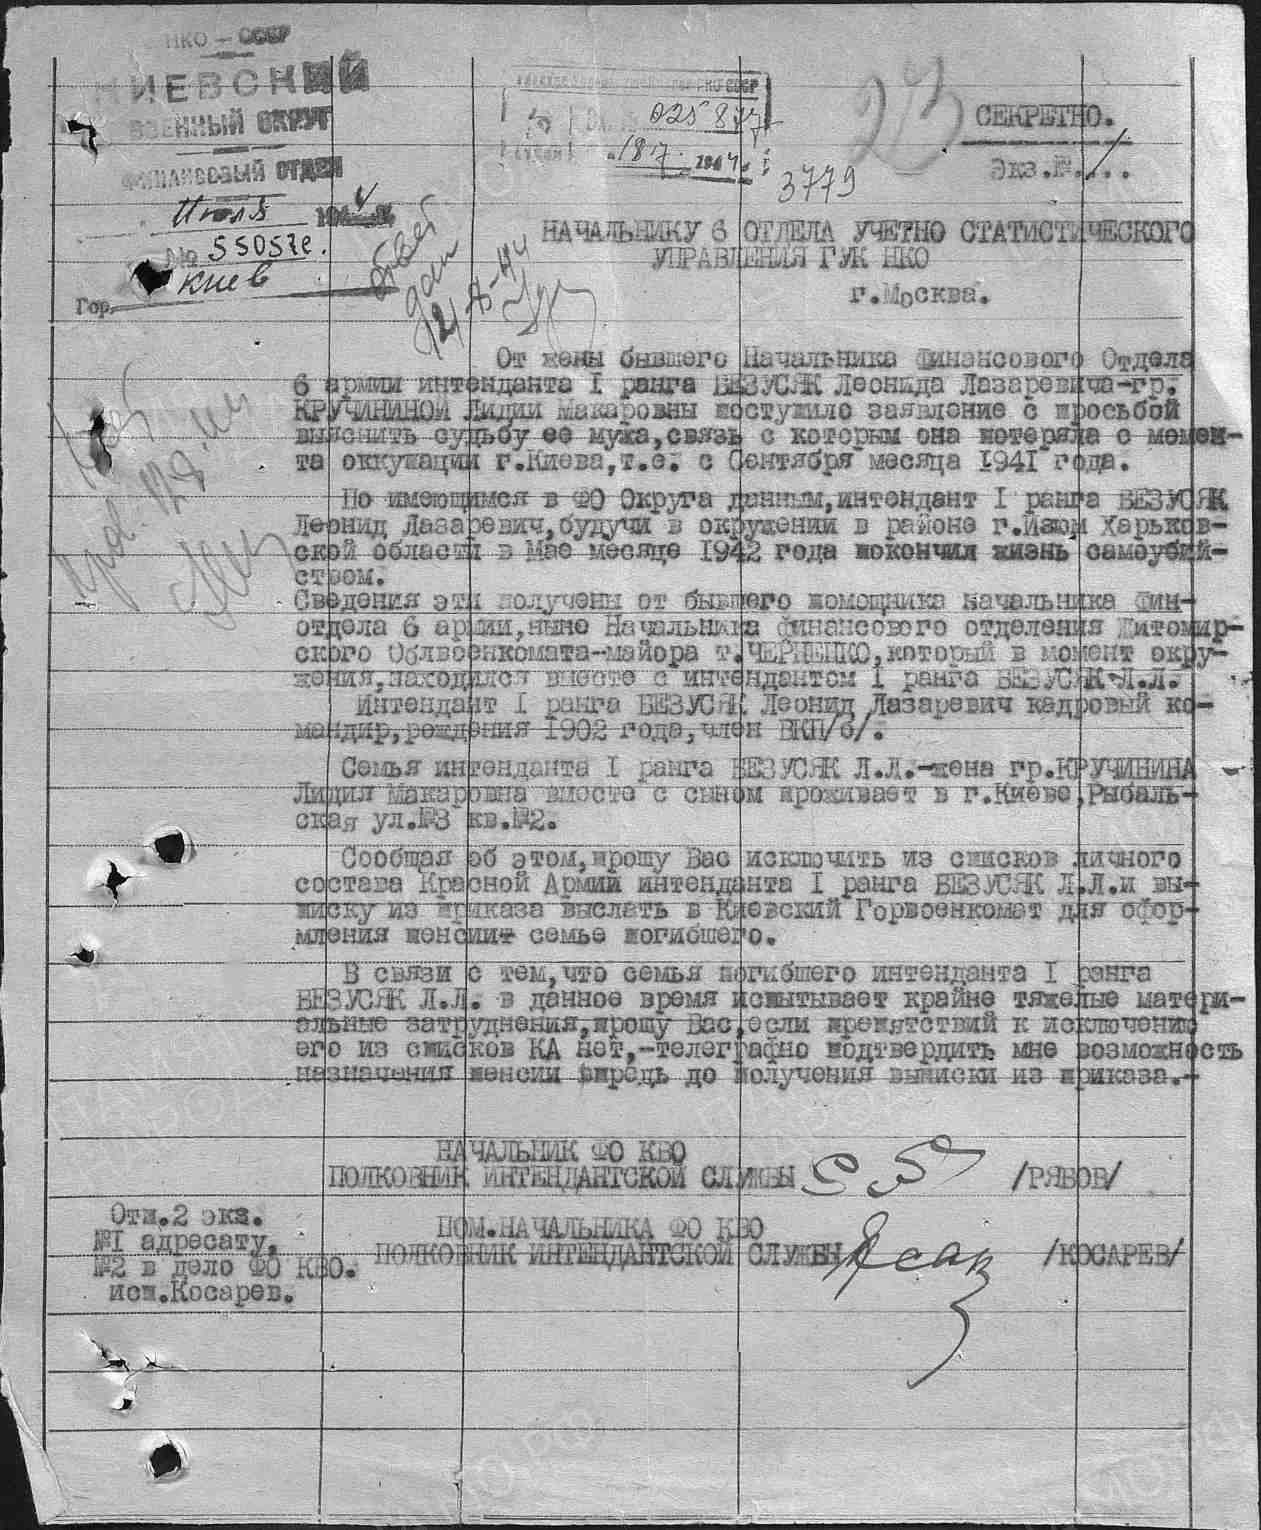 НКО – СССР
КИЕВСКИЙ
ВОЕННЫЙ ОКРУГ
ФИНАНСОВЫЙ ОТДЕЛ
Июля 1944
№ 55057с.
Гор. Киев
НКО СССР
025877
"18" 7 1944
23
3779
СЕКРЕТНО.
Экз.№ 1.
Ответ
дан
12/8-44
НАЧАЛЬНИКУ 6 ОТДЕЛА УЧЕТНО СТАТИСТИЧЕСКОГО
УПРАВЛЕНИЯ ГУК НКО
г.Москва.
От жены бывшего Начальника Финансового Отдела
6 армии интенданта I ранга БЕЗУСЯК Леонида Лазаревича-гр.
КРУЧИНИНОЙ Лидии Макаровны поступило заявление с просьбой
выяснить судьбу ее мужа,связь с которым она потеряла с момен-
та оккупации г.Киева,т.е. с Сентября месяца 1941 года.
По имеющимся в ФО Округа данным,интендант I ранга БЕЗУСЯК
Леонид Лазаревич,будучи в окружении в районе г.Изюм Харьков-
ской области в Мае месяце 1942 года покончил жизнь самоубий-
ством.
Сведения эти получены от бывшего помощника начальника фин-
отдела 6 армии,ныне Начальника финансового отделения Житомир-
ского Облвоенкомата-майора т.ЧЕРНЕНКО,который в момент окру-
жения,находился вместе с интендантом I ранга БЕЗУСЯК Л.Л.
Интендант I ранга БЕЗУСЯК Леонид Лазаревич кадровый ко-
мандир,рождения 1902 года,член ВКП/б/.
Семья интенданта I ранга БЕЗУСЯК Л.Л.-жена гр.КРУЧИНИНА
Лидия Макаровна вместе с сыном проживает в г.Киеве,Рыбаль-
ская ул.№3 кв.№2.
Сообщая об этом,прошу Вас исключить из списков личного
состава Красной Армии интенданта I ранга БЕЗУСЯК Л.Л.и вы-
писку из приказа выслать в Киевский Горвоенкомат для офор-
мления пенсии семье погибшего.
В связи с тем,что семья погибшего интенданта I ранга
БЕЗУСЯК Л.Л. в данное время испытывает крайне тяжелые матери-
альные затруднения,прошу Вас,если препятствий к исключению
его из списков КА нет,-телеграфно подтвердить мне возможность
назначения пенсии впредь до получения выписки из приказа.-
НАЧАЛЬНИК ФО КВО
ПОЛКОВНИК ИНТЕНДАНТСКОЙ СЛУЖБЫ /РЯБОВ/
ПОМ.НАЧАЛЬНИКА ФО КВО
ПОЛКОВНИК ИНТЕНДАНТСКОЙ СЛУЖБЫ /КОСАРЕВ/
Отп.2 экз.
№I адресату,
№2 в дело ФО КВО.
исп.Косарев.